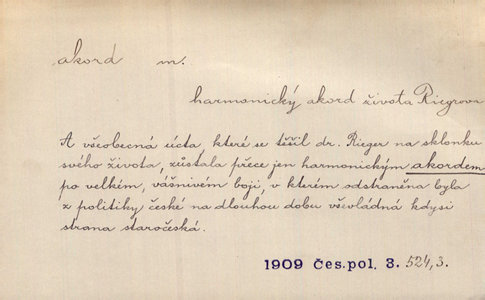 akord m.
harmonický akord života Riegrova
A všeobecná úcta, které se těšil dr. Rieger na sklonku
svého života, zůstala přece jen harmonickým akordem
po velkém, vášnivém boji, v kterém odstraněna byla
z politiky české na dlouhou dobu vševládná kdysi
strana staročeská.
1909 Čes. pol. 3. 524,3.